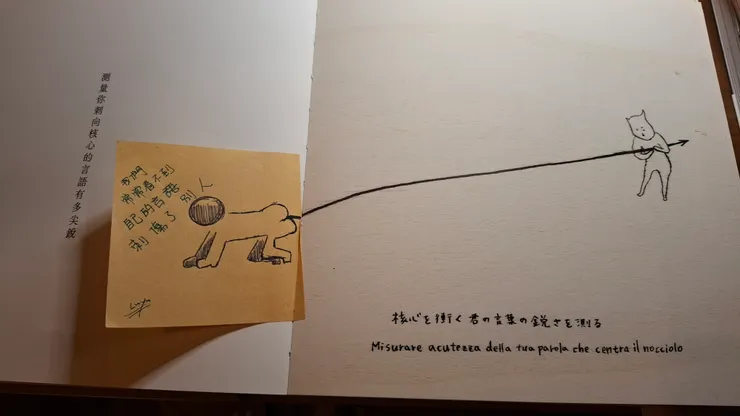 測量你刺向核心的言語有多尖銳
我們
常常看不到
自己的言語
刺傷了別人
核心を衝く君の言葉の鋭さを測る
Misurare acutezza della tua parola che centra il nocciolo